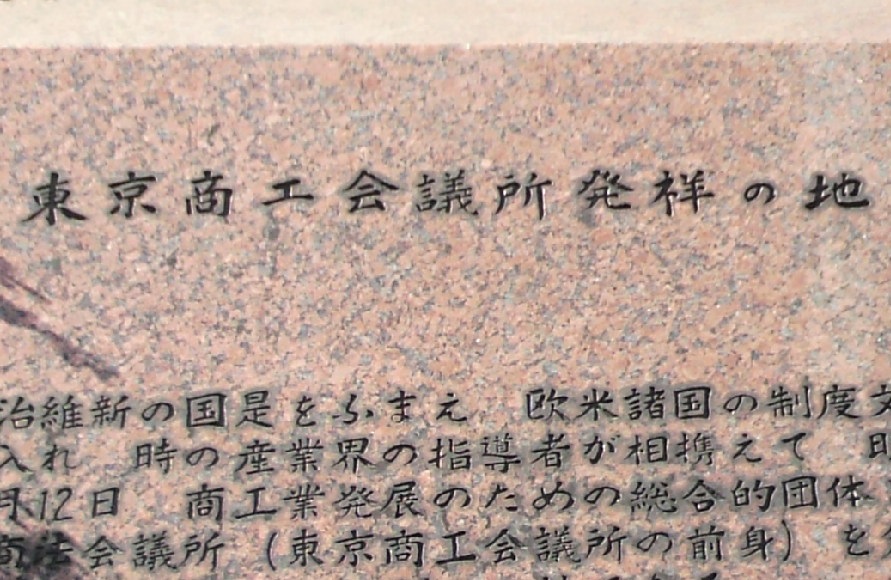 東京商工会議所発祥の地
治維新の国是をふまえ 欧米諸国の制度文
入れ 時の産業界の指導者が相携えて 明
月12日 商工業発展のための総合的団体
商法会議所(東京商工会議所の前身)を